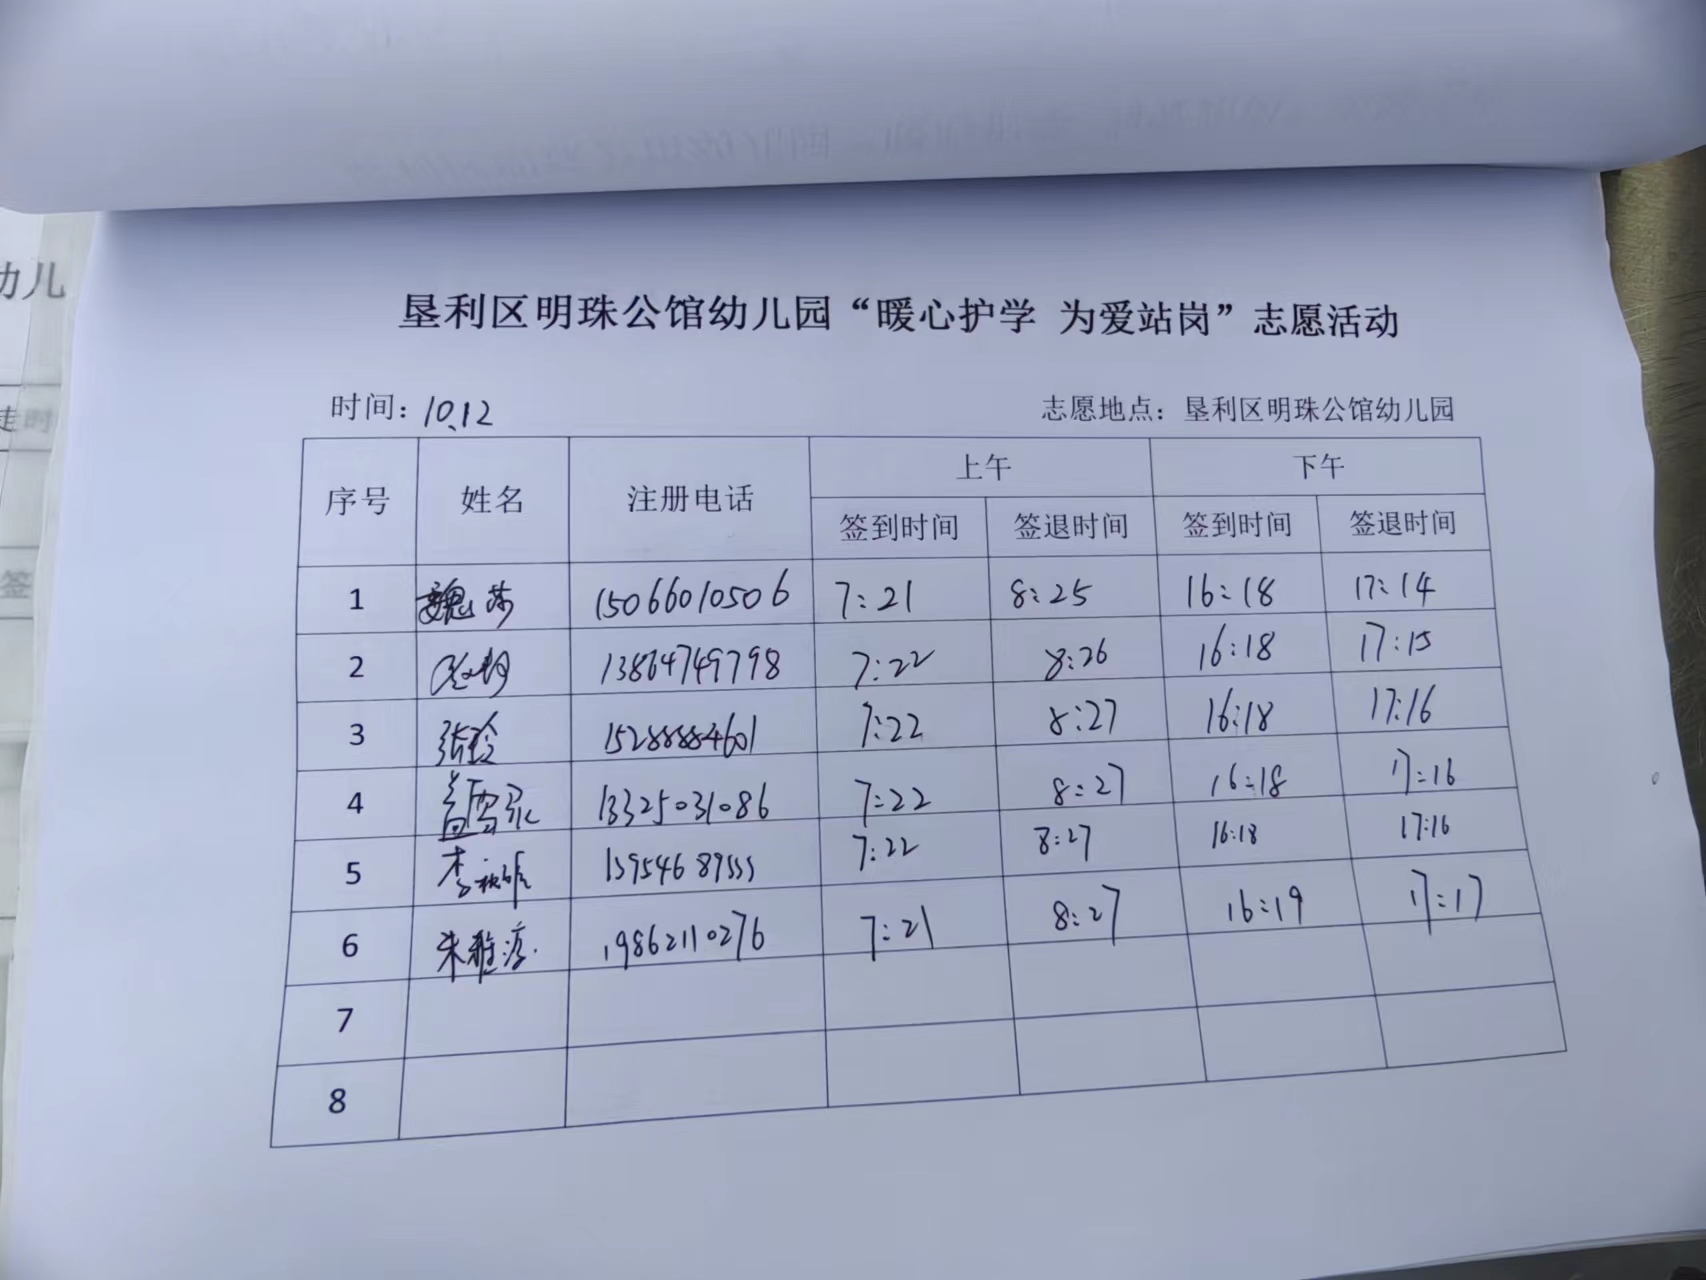 幼儿
走时
签
垦利区明珠公馆幼儿园“暖心护学 为爱站岗”志愿活动
时间：10.12 志愿地点：垦利区明珠公馆幼儿园
序号 姓名 注册电话 上午 下午
签到时间 签退时间 签到时间 签退时间
1 魏莎 15066010506 7:21 8:25 16:18 17:14
2 13864749798 7:22 8:26 16:18 17:15
3 张玲 15288884601 7:22 8:27 16:18 17:16
4 13325031086 7:22 8:27 16:18 17:16
5 李 13954689555 7:22 8:27 16:18 17:16
6 朱雅 19862110276 7:21 8:27 16:19 17:17
7
8